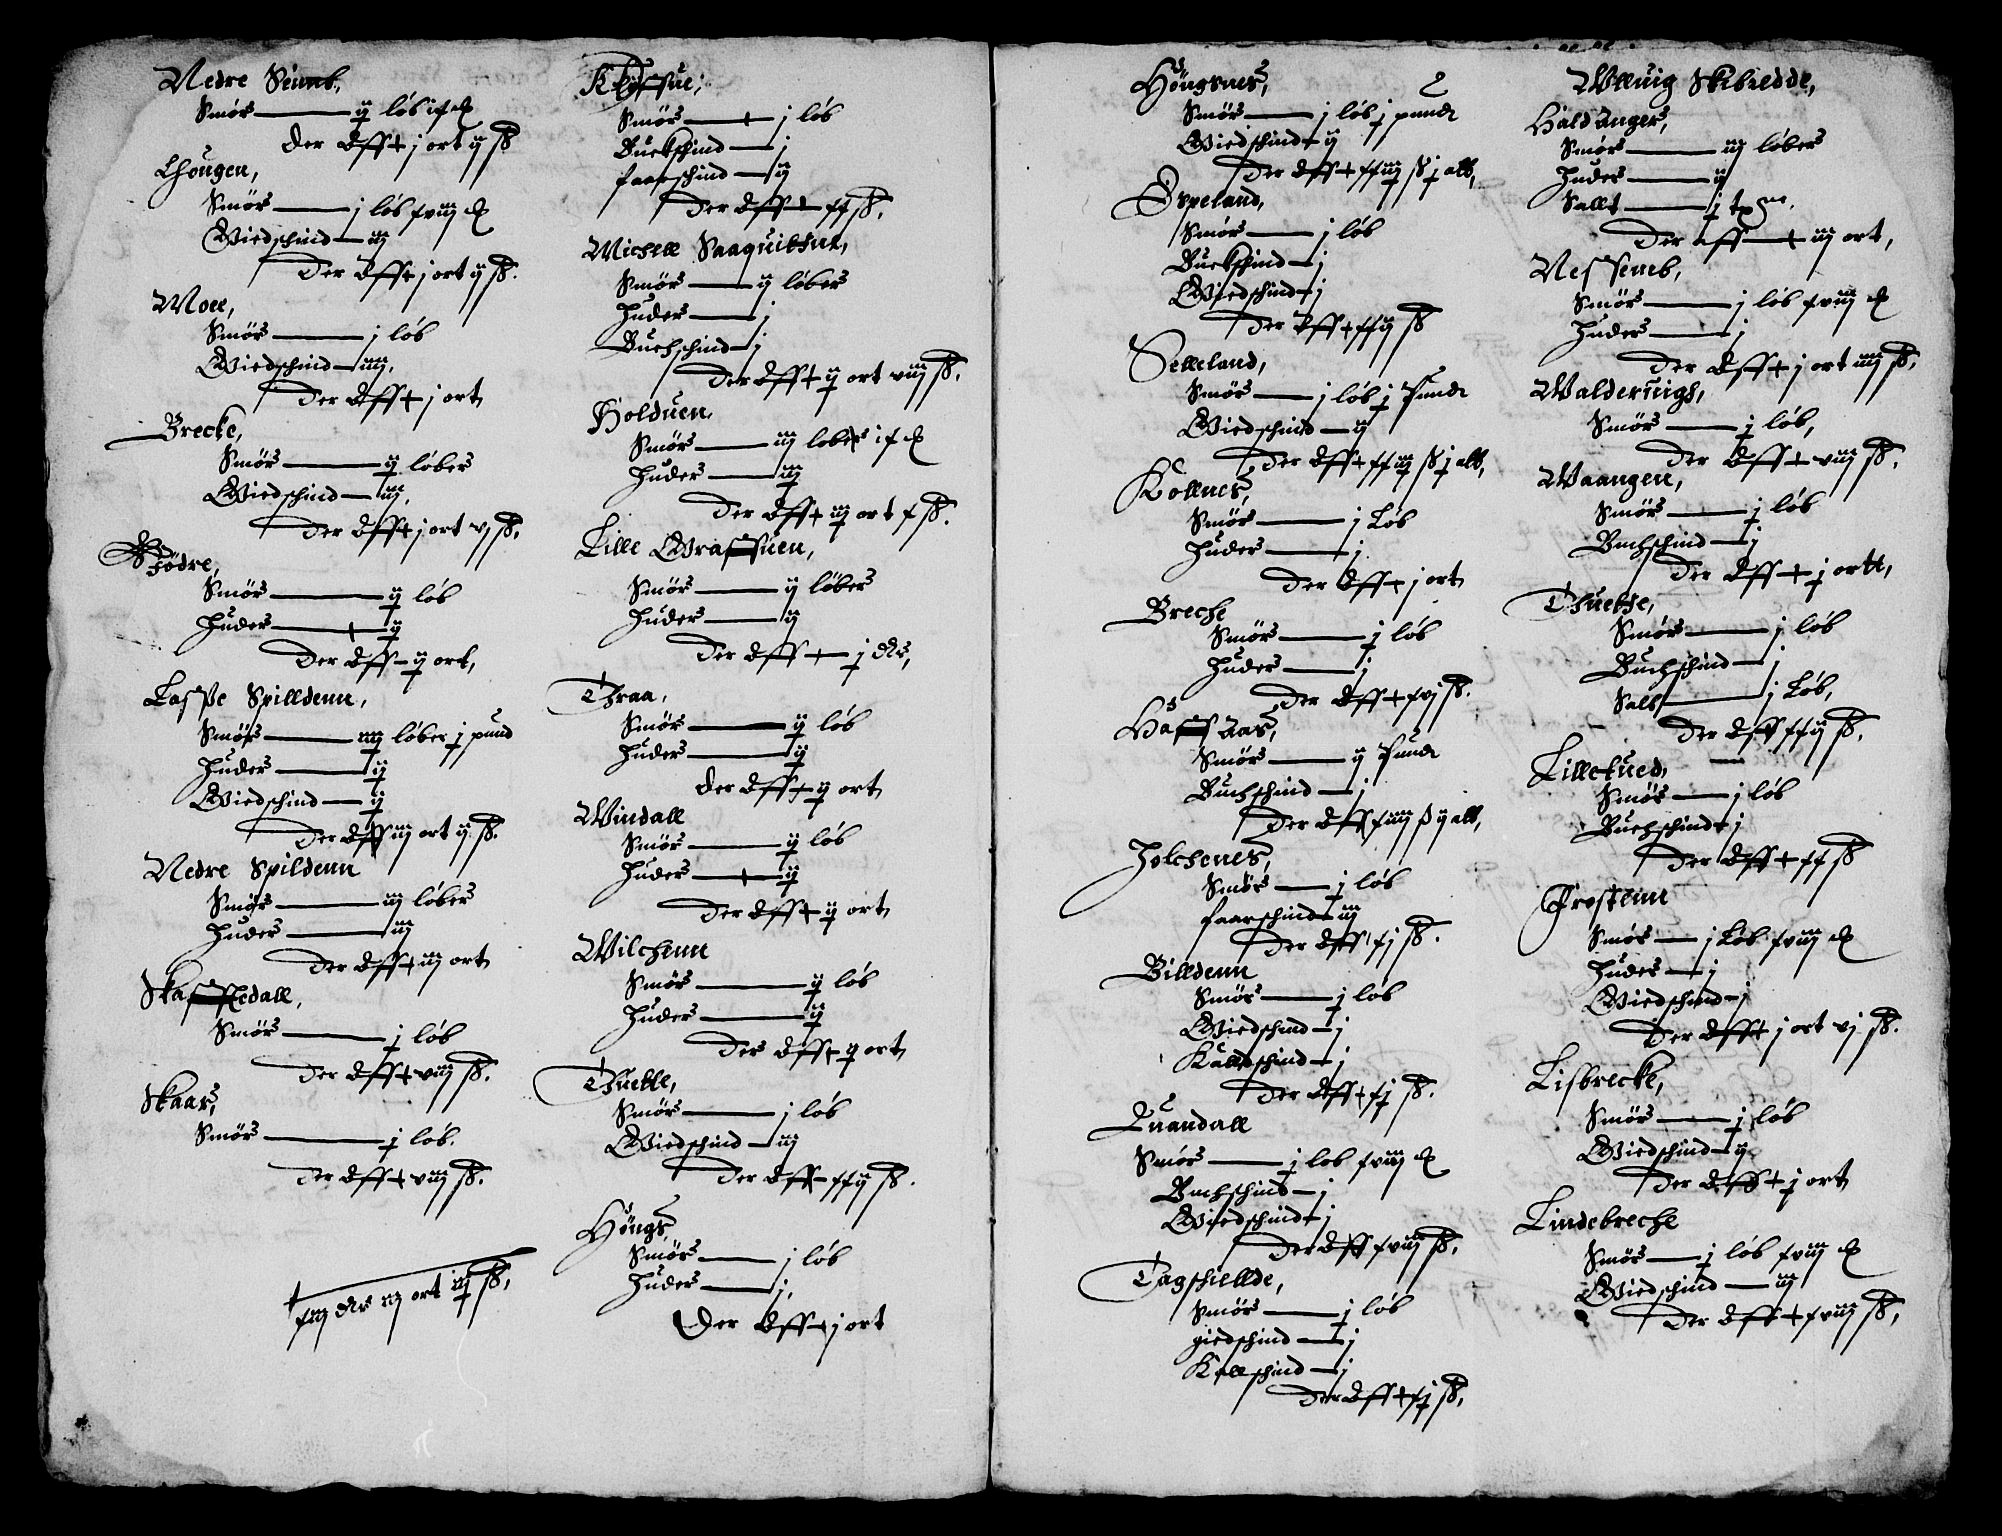 Nedre Seimb,
Smör — ij löb if
Der Aff + j ort ij ß
Lhougen,
Smör — j löb xviij
Giedschind — iij
Der Aff + j ort ij ß.
Moce,
Smör — j löb
Giedschind — iiij,
Der Aff + j ort
Brecke,
Smör — ij löber
Giedschind — iij,
Der Aff + j ort vj ß,
Födre,
Smör — ij löb
Huder — ij
Der Aff — ij ort,
Lasse Spilldenn,
Smör — iiij löber j pund
Huder — ij
Giedschind — ij
Der Aff iij ort ij ß.
Nedre Spildenn
Smör — iij löber
Huder — iij
Der Aff + iij ort
Skafftedall,
Smör — j löb
Der Aff + viij ß.
Skaar,
Smör — j löb.
Der Aff + viij ß.
iij ort iiij ß,
Smör — j löb
Buckschind — j
faarschind — ij
Der Aff + xx ß,
Michell Saaquitne,
Smör — ij löber
Huder — j
Buchschind — j
Der Aff + ij ort viij ß,
Holduen,
Smör — iij lober if
Huder — iij
Der Aff + iij ort x ß.
Lille Graffuen,
Smör — ij löber
Huder — ij
Der Aff + j dlr,
Thraa,
Smör — ij löb
Huder — ij
Der Aff + ij ort
Windall
Smör — ij löb
Huder — ij
Der Aff + ij ort
Wilchenn
Smör — ij löb
Huder — ij
Der Aff + ij ort
Thuette,
Smör — j löb
Giedschind — iij
Der Aff — xxij ß.
Höugs,
Smör — j löb
Huder — j,
Der Aff + j ort
2
Höugsnes,
Smör — j löb j pund
Giedschind + ij
Der Aff + xxiij ß j alb,
Espeland,
Smör — j löb
Buckschind — j
Giedschind + j
Der Aff + xxij ß
Selleland,
Smör — j löb j Pund
Giedschind — ij
Der Aff + xxiij ß j alb,
Kollnes,
Smör — j Löb
Huder — j
Der Aff + j ort
Breche
Smör — j löb
Huder — j
Der Aff + xvj ß.
Haffaas,
Smör — ij Pund
Buchschind — j
Der Aff xiiij ß ij alb,
Holchenes,
Smör — j löb
faarschind iij
Der Aff xj ß.
Billdenn
Smör — j löb
Giedschind — j
Kallschind — j
Der Aff + xj ß.
Quandall
Smör — j lob xviij
Buchschind — j
Giedschind + j
Der Aff xviij ß.
Tagschiellde,
Smör — j löb
giedschind — j
Kallschind — j
Der Aff + xj ß,
Wlluig Skibredde,
Haldanger,
Smör — iij löber
Huder — ij
Sallt — j
Der aff + iij ort,
Nessemb,
Smör — j löb xviij
Huder — j
Der Aff + j ort iiij ß,
Walderuigh,
Smör — j löb,
Der Aff + viij ß.
Waangen,
Smör — j löb
Buchschind — j
Der Aff + j ortt,
Thuette,
Smör — j löb
Buchschind — j
Salt — j Löb,
Der Aff xxij ß.
Lilletued,
Smör — j löb
Buchschind + j
Der Aff + xx ß
Frostenn
Smör — j Löb xviij
Huder — j
Giedschind — j
Der Aff + j ort vj ß.
Lisbrecke,
Smör — j löb
Giedschind — ij
Der Aff + j ort
Lindebreche
Smör — j löb xviij
Giedschind — iij
Der Aff + xviij ß,